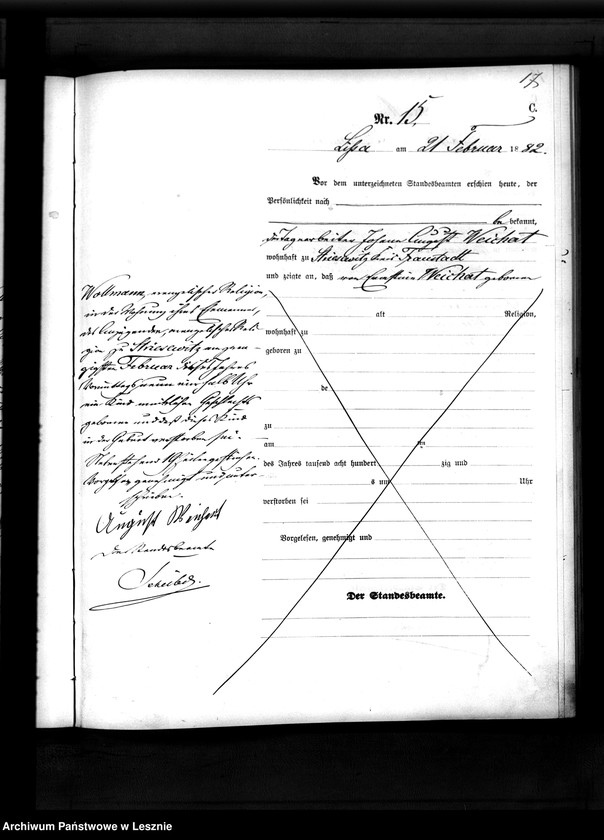 17
C.
Nr. 15.
Lissa am 21 Februar 1882.
Vor dem unterzeichneten Standesbeamten erschien heute, der
Persönlichkeit nach
be kannt,
der Tagearbeiter Johann August Weichat
wohnhaft zu Striesewitz Kreis Fraustadt
und zeigte an, daß von Ernstine Weichat geborene
Wollmann, evangelischer Religion,
in der Wohnung ihres Ehemannes,
des Anzeigenden, evangelischer Reli-
gion zu Striesewitz am zwan-
zigsten Februar dieses Jahres
Vormittags neun ein halb Uhr
ein Kind weiblichen Geschlechts
geboren und daß dieses Kind
in der Geburt verstorben sei.
Vorgelesen genehmigt und unter-
schrieben.
August
Der Standesbeamte
alt Religion,
wohnhaft zu
geboren zu
de
zu
am ten
des Jahres tausend acht hundert zig und
s um Uhr
verstorben sei
Vorgelesen, genehmigt und
Der Standesbeamte.
Archiwum Państwowe w Lesznie